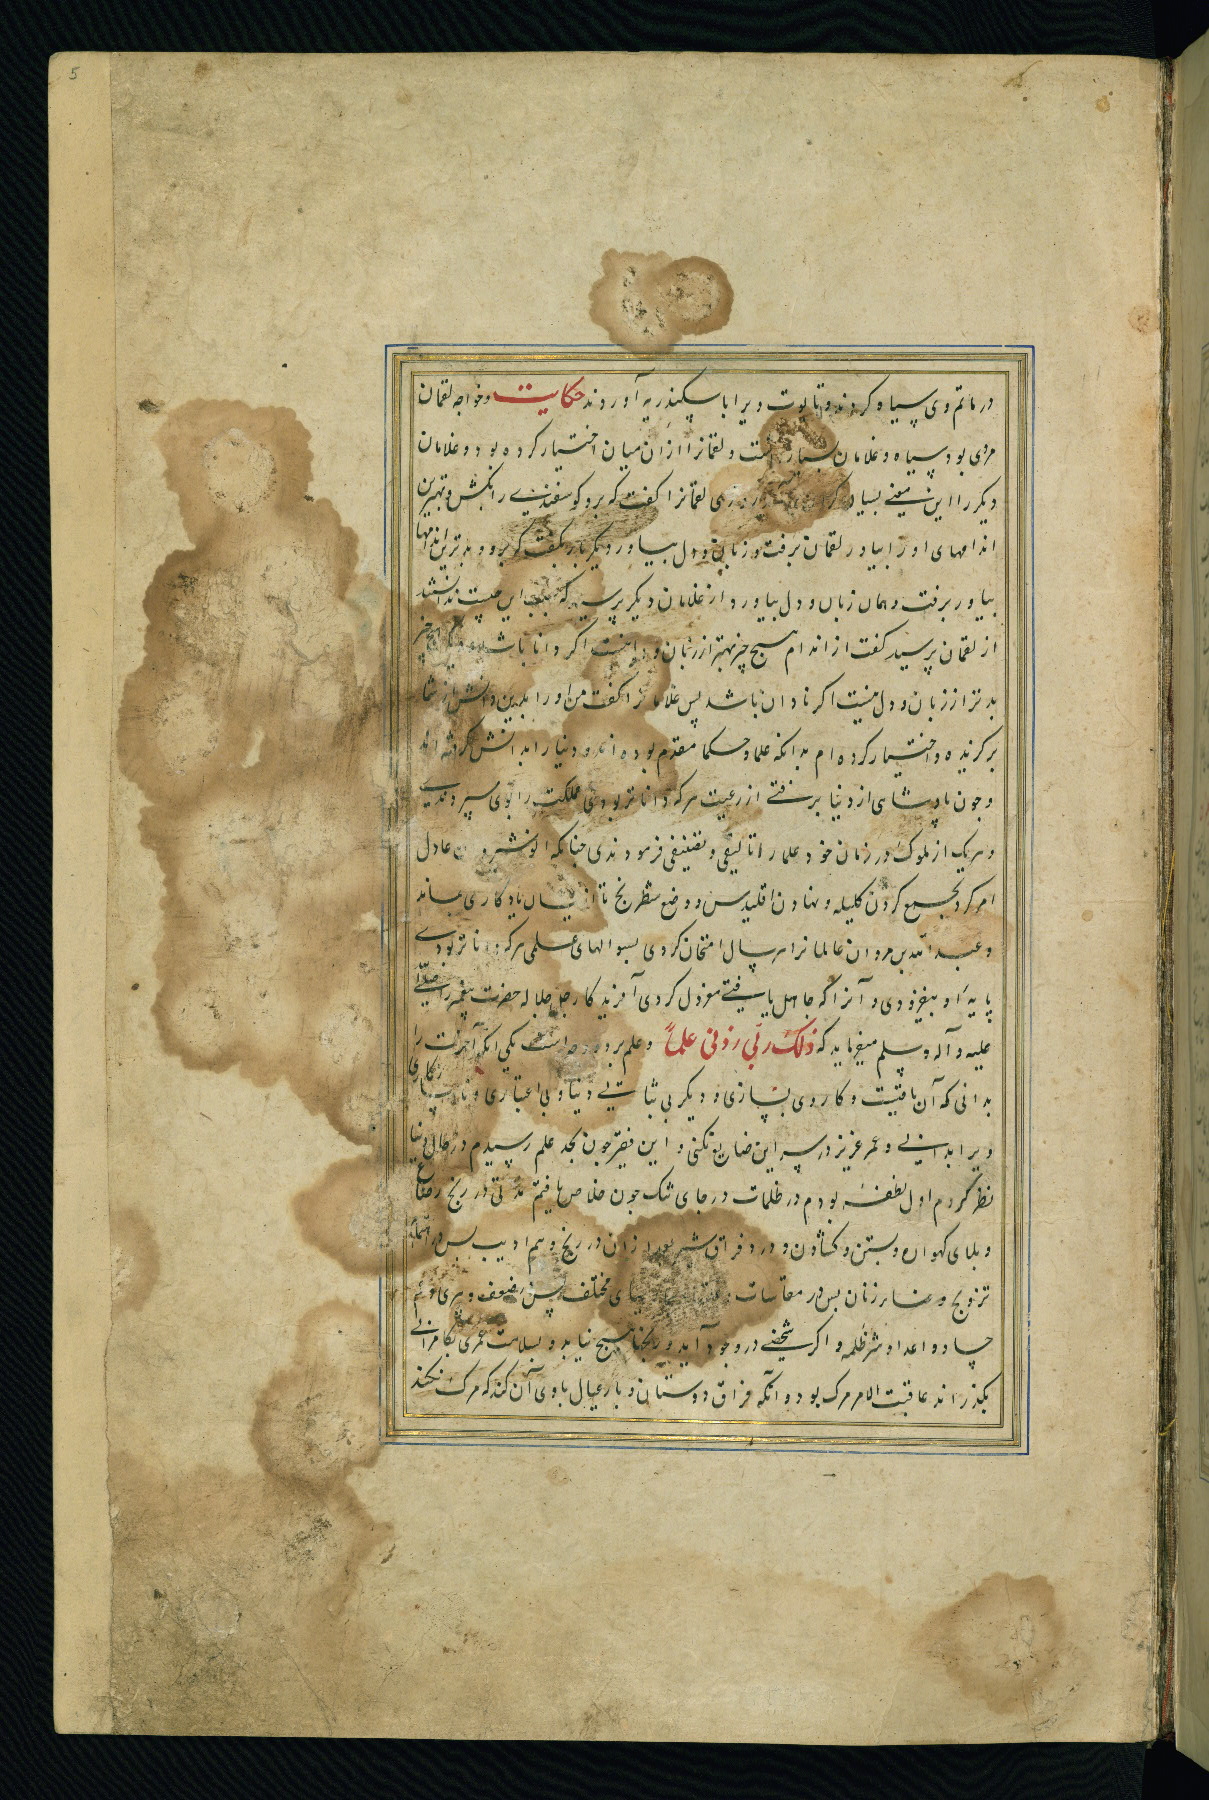 5
در ماتم وی سیاه کردند و تابوت ویرا با سکندریه آوردند حکایت و خواجه لقمان
مردی بود سیاه و غلامان بسیار داشت و لقمانرا ازان میان اختیار کرده بود و غلامان
دیکر را این معنے بسیار روزی لقمانرا کفت که برو کوسفندے را بکش و بهترین
اندامهای او را بیاور لقمان برفت و زبان و دل بیاورد دیکر بار بکفت که برو و بدترین اندامها
بیاور برفت و همان زبان و دل بیاورد از غلامان دیکر پرسید که سبب این چیست ندانستند
از لقمان پرسید کفت از اندام هیچ چیز بهتر از زبان و دل نیست اکر دانا باشد و هیچ چیز
بدتر از زبان و دل نیست اکر نادان باشد پس غلامانرا کفت من او را بدین دانش از شما
برکزیده و اختیار کرده ام بدانکه علما و حکما مقدم بوده اند و دنیا را بدانش کرفته اند
و چون پادشاهی از دنیا برفتے از رعیت هرکه دانا تر بودی مملکت را بوی سپردندے
و هریک از ملوک در زمان خود علما را تالیفی و تصنیفی فرمودندی چنانکه انوشیروان عادل
امر کرد بجمیع کردن کلیله و نهادن اقلیدس و وضع شطرنج تا ازیشان یادکاری بماند
و عبد الله بن مروان عالمانرا هر سال امتحان کردی بسوالهای علمی هرکه دانا تر بودے
پایه او بیفزودی و آنرا که جاهل یافتے معزول کردی آفریدکار جل جلاله حضرت پیغمبر را صلی الله
علیه و آله و سلم میفرماید که ذلک ربّی زدنی علماً و علم بر دو وجه است یکی انکه آخرت را
بدانی که آن باقیست و کار وی بسازی و دیکر بی ثباتیے دنیا و بی اعتباری و ناپایداری
ویرا بدانے و عمر عزیز در سر این ضایع نکنی و این فقیر چون بحد علم رسیدم در حال دنیا
نظر کردم اول نطفه بودم در ظلمات در جای تنک چون خلاص یافتم مدتی در رنج رضاع
و بلای کهواره و بستن و کشادن و درد فراق شیر بعد ازان در رنج و بیم ادیب پس در اهتمام
تزویج و عنا بر زنان پس در مقاسات مختلف پس ضعف و پیری و غم
جاه و اعدا و شر ظلمه و اکر شخصے در وجود آید و رنجها هیچ نیابد و بسلامت عمری بکامرانے
بکذراند عاقبت الامر مرک بود و انکه فراق دوستان و بار عیال با وی آن کند که مرک نکند